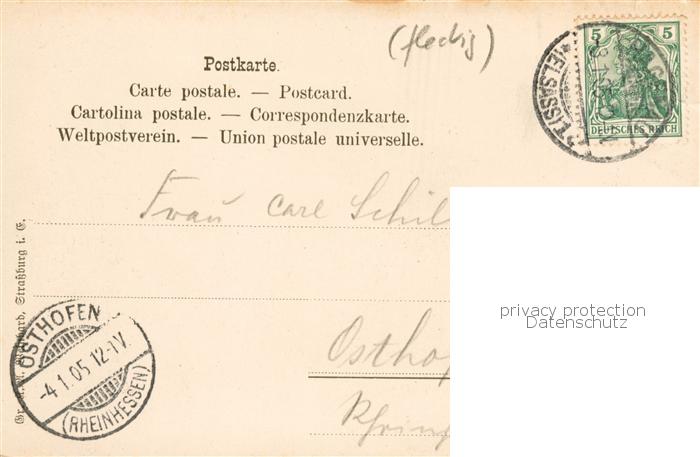 (fleckig)
Postkarte.
Carte postale. — Postcard.
Cartolina postale. — Correspondenzkarte.
Weltpostverein. — Union postale universelle.
5 5
DEUTSCHES REICH
(ELSASS)
Frau Carl Schil
privacy protection
Datenschutz
Ostho
Straßburg i. E.
OSTHOFEN
-4.1.05.12-1V.
(RHEINHESSEN)